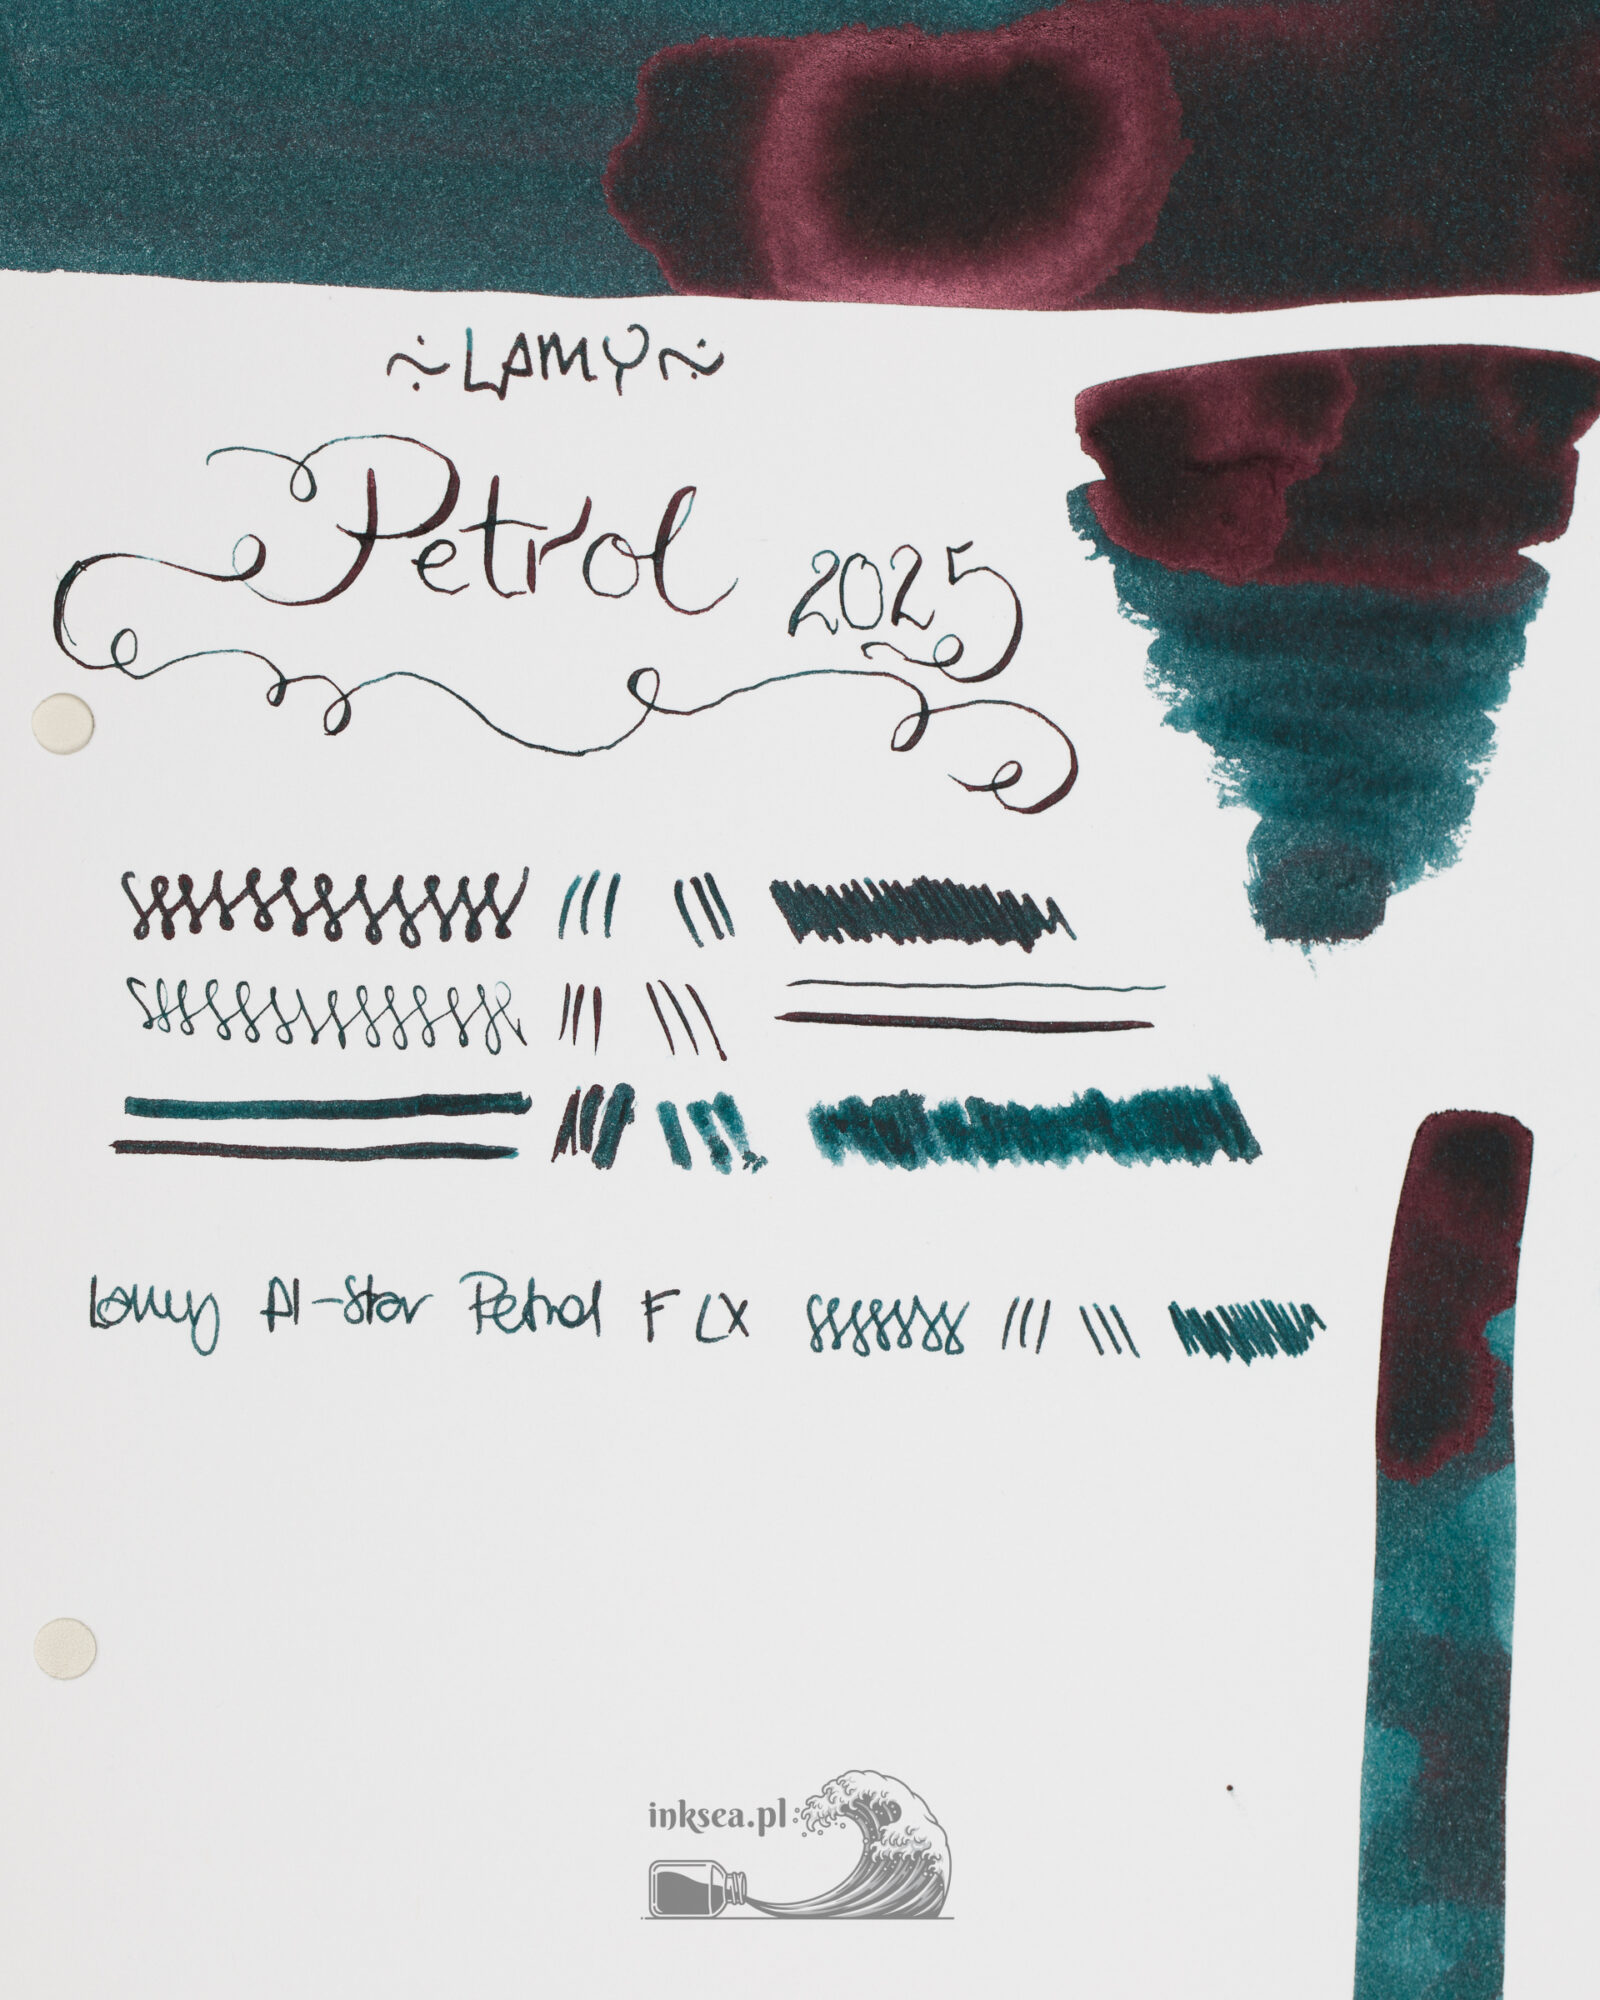 ~LAMY~
Petrol 2025
Lamy Al-Star Petrol F LX
inksea.pl